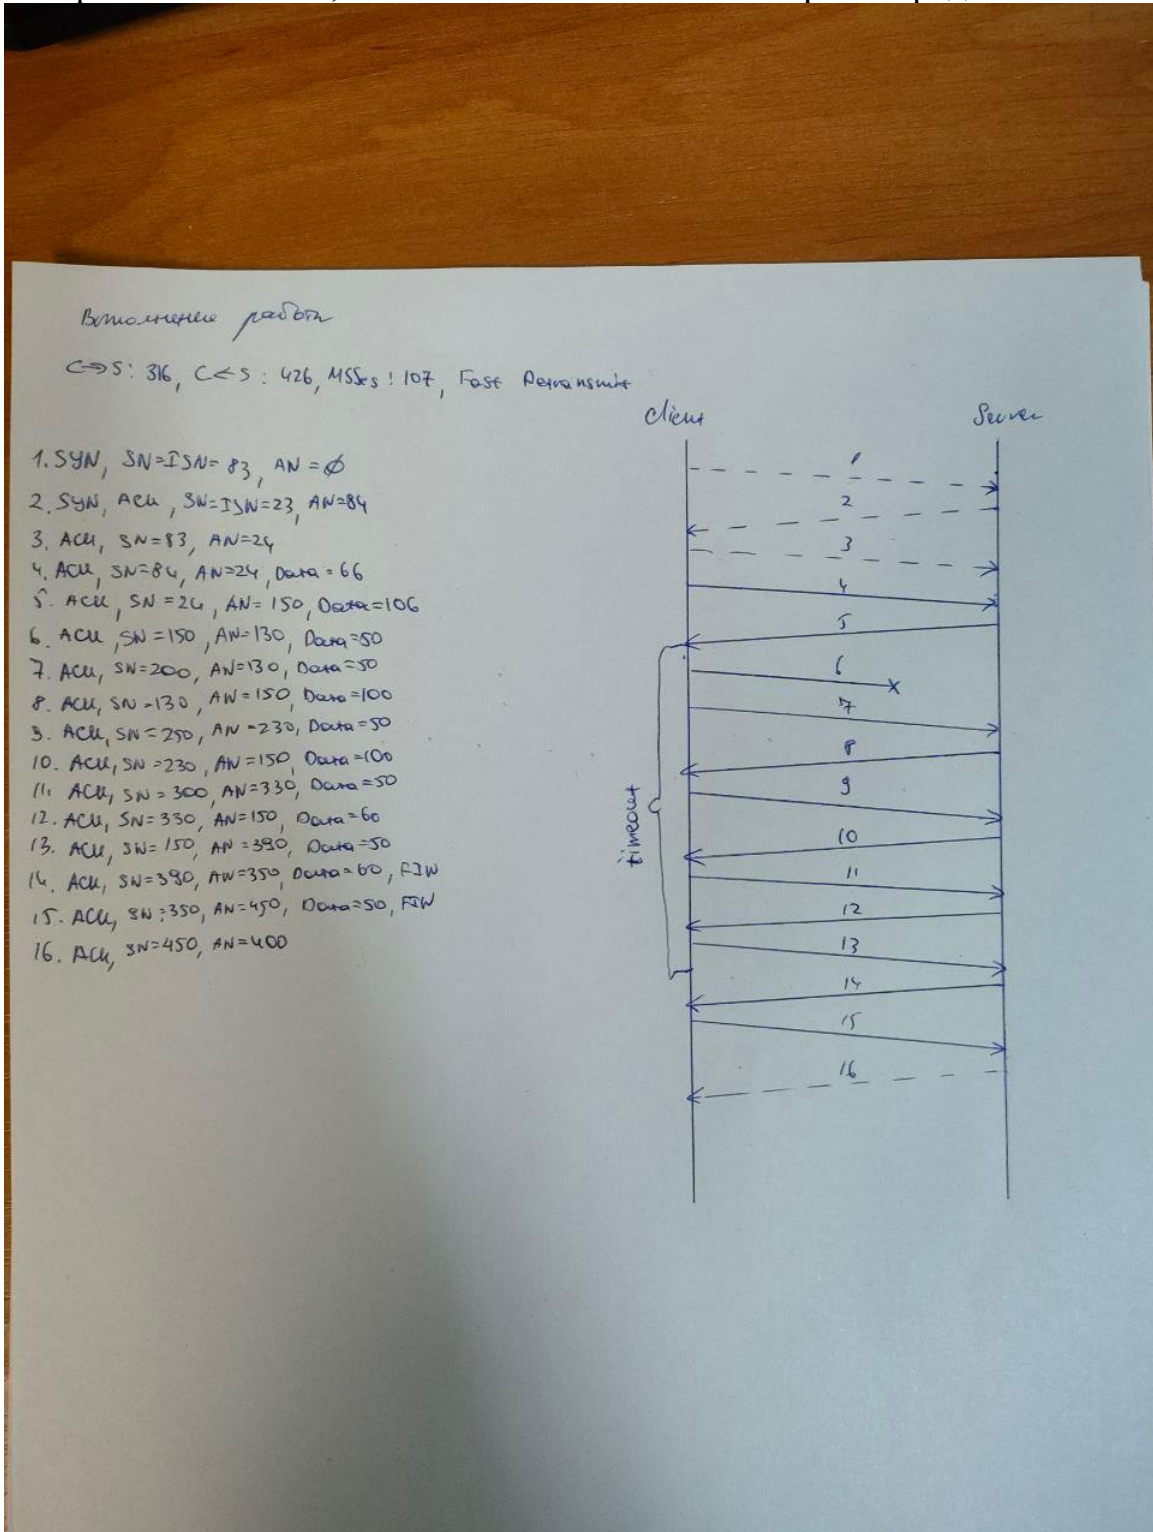 Выполнение работы
C=>S: 316, C<=S: 426, MSScs: 107, Fast Retransmit
Client
Server
1. SYN, SN=ISN=83, AN=Ø
2. SYN, ACK, SN=ISN=23, AN=84
3. ACK, SN=83, AN=24
4. ACK, SN=84, AN=24, Data=66
5. ACK, SN=24, AN=150, Data=106
6. ACK, SN=150, AN=130, Data=50
7. ACK, SN=200, AN=130, Data=50
8. ACK, SN=130, AN=150, Data=100
9. ACK, SN=250, AN=230, Data=50
10. ACK, SN=230, AN=150, Data=100
11. ACK, SN=300, AN=330, Data=50
12. ACK, SN=330, AN=150, Data=60
13. ACK, SN=150, AN=390, Data=50
14. ACK, SN=390, AN=350, Data=60, FIN
15. ACK, SN=350, AN=450, Data=50, FIN
16. ACK, SN=450, AN=400
1
2
3
4
5
6
7
8
9
10
11
12
13
14
15
16
timeout